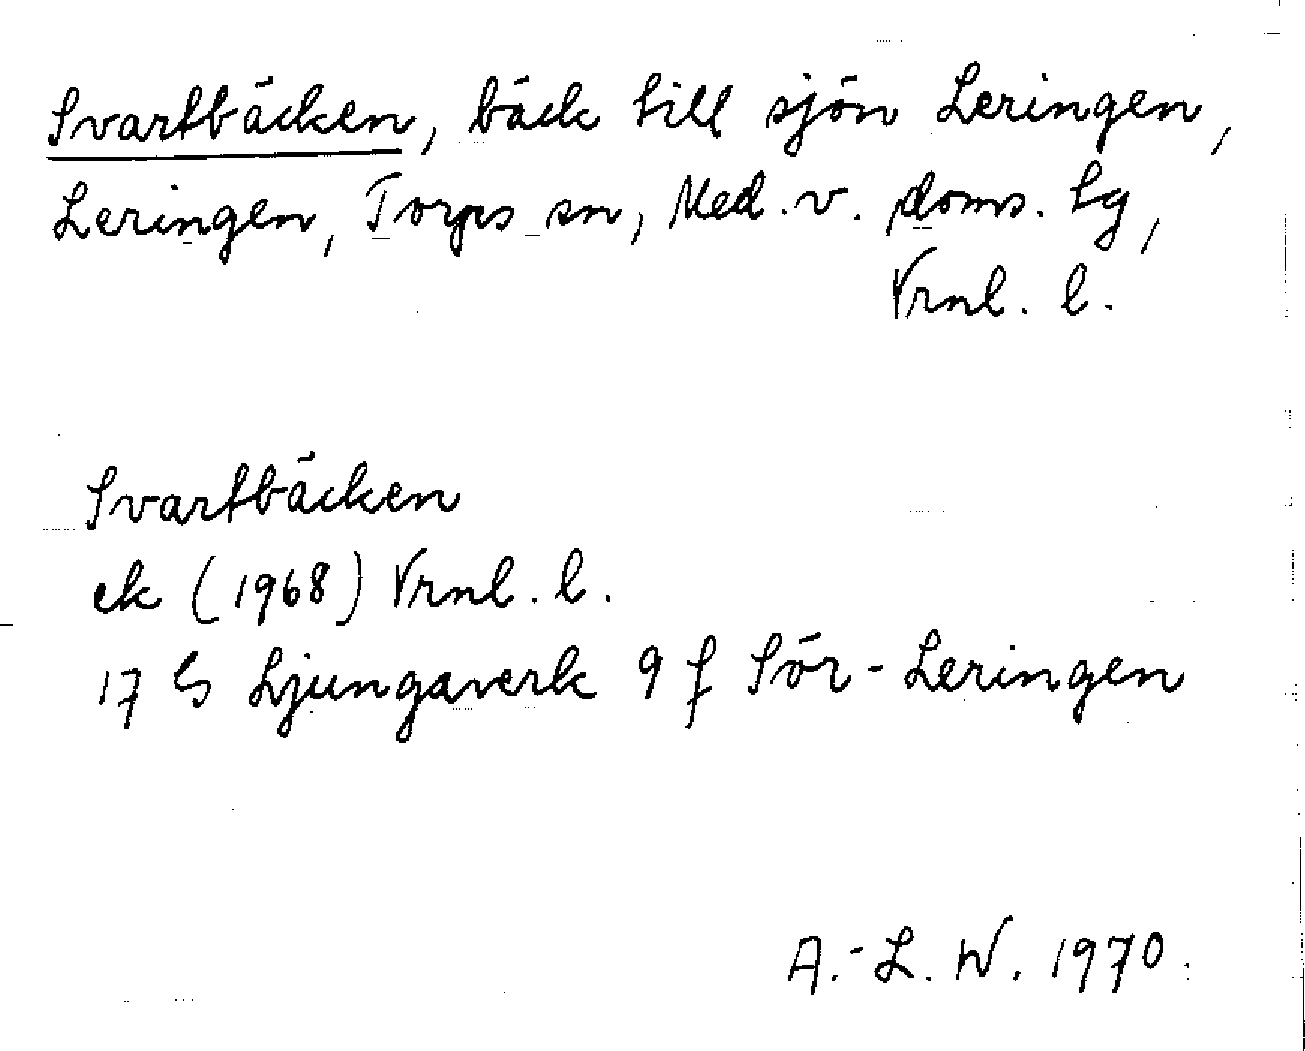 Svartbäcken, bäck till sjön Leringen,
Leringen, Torps sn, Med. v. doms. tg,
Vrnl. l.
Svartbäcken
ek (1968) Vrnl. l.
17 G Ljungaverk 9 f Sör-Leringen
A.-L. W. 1970.